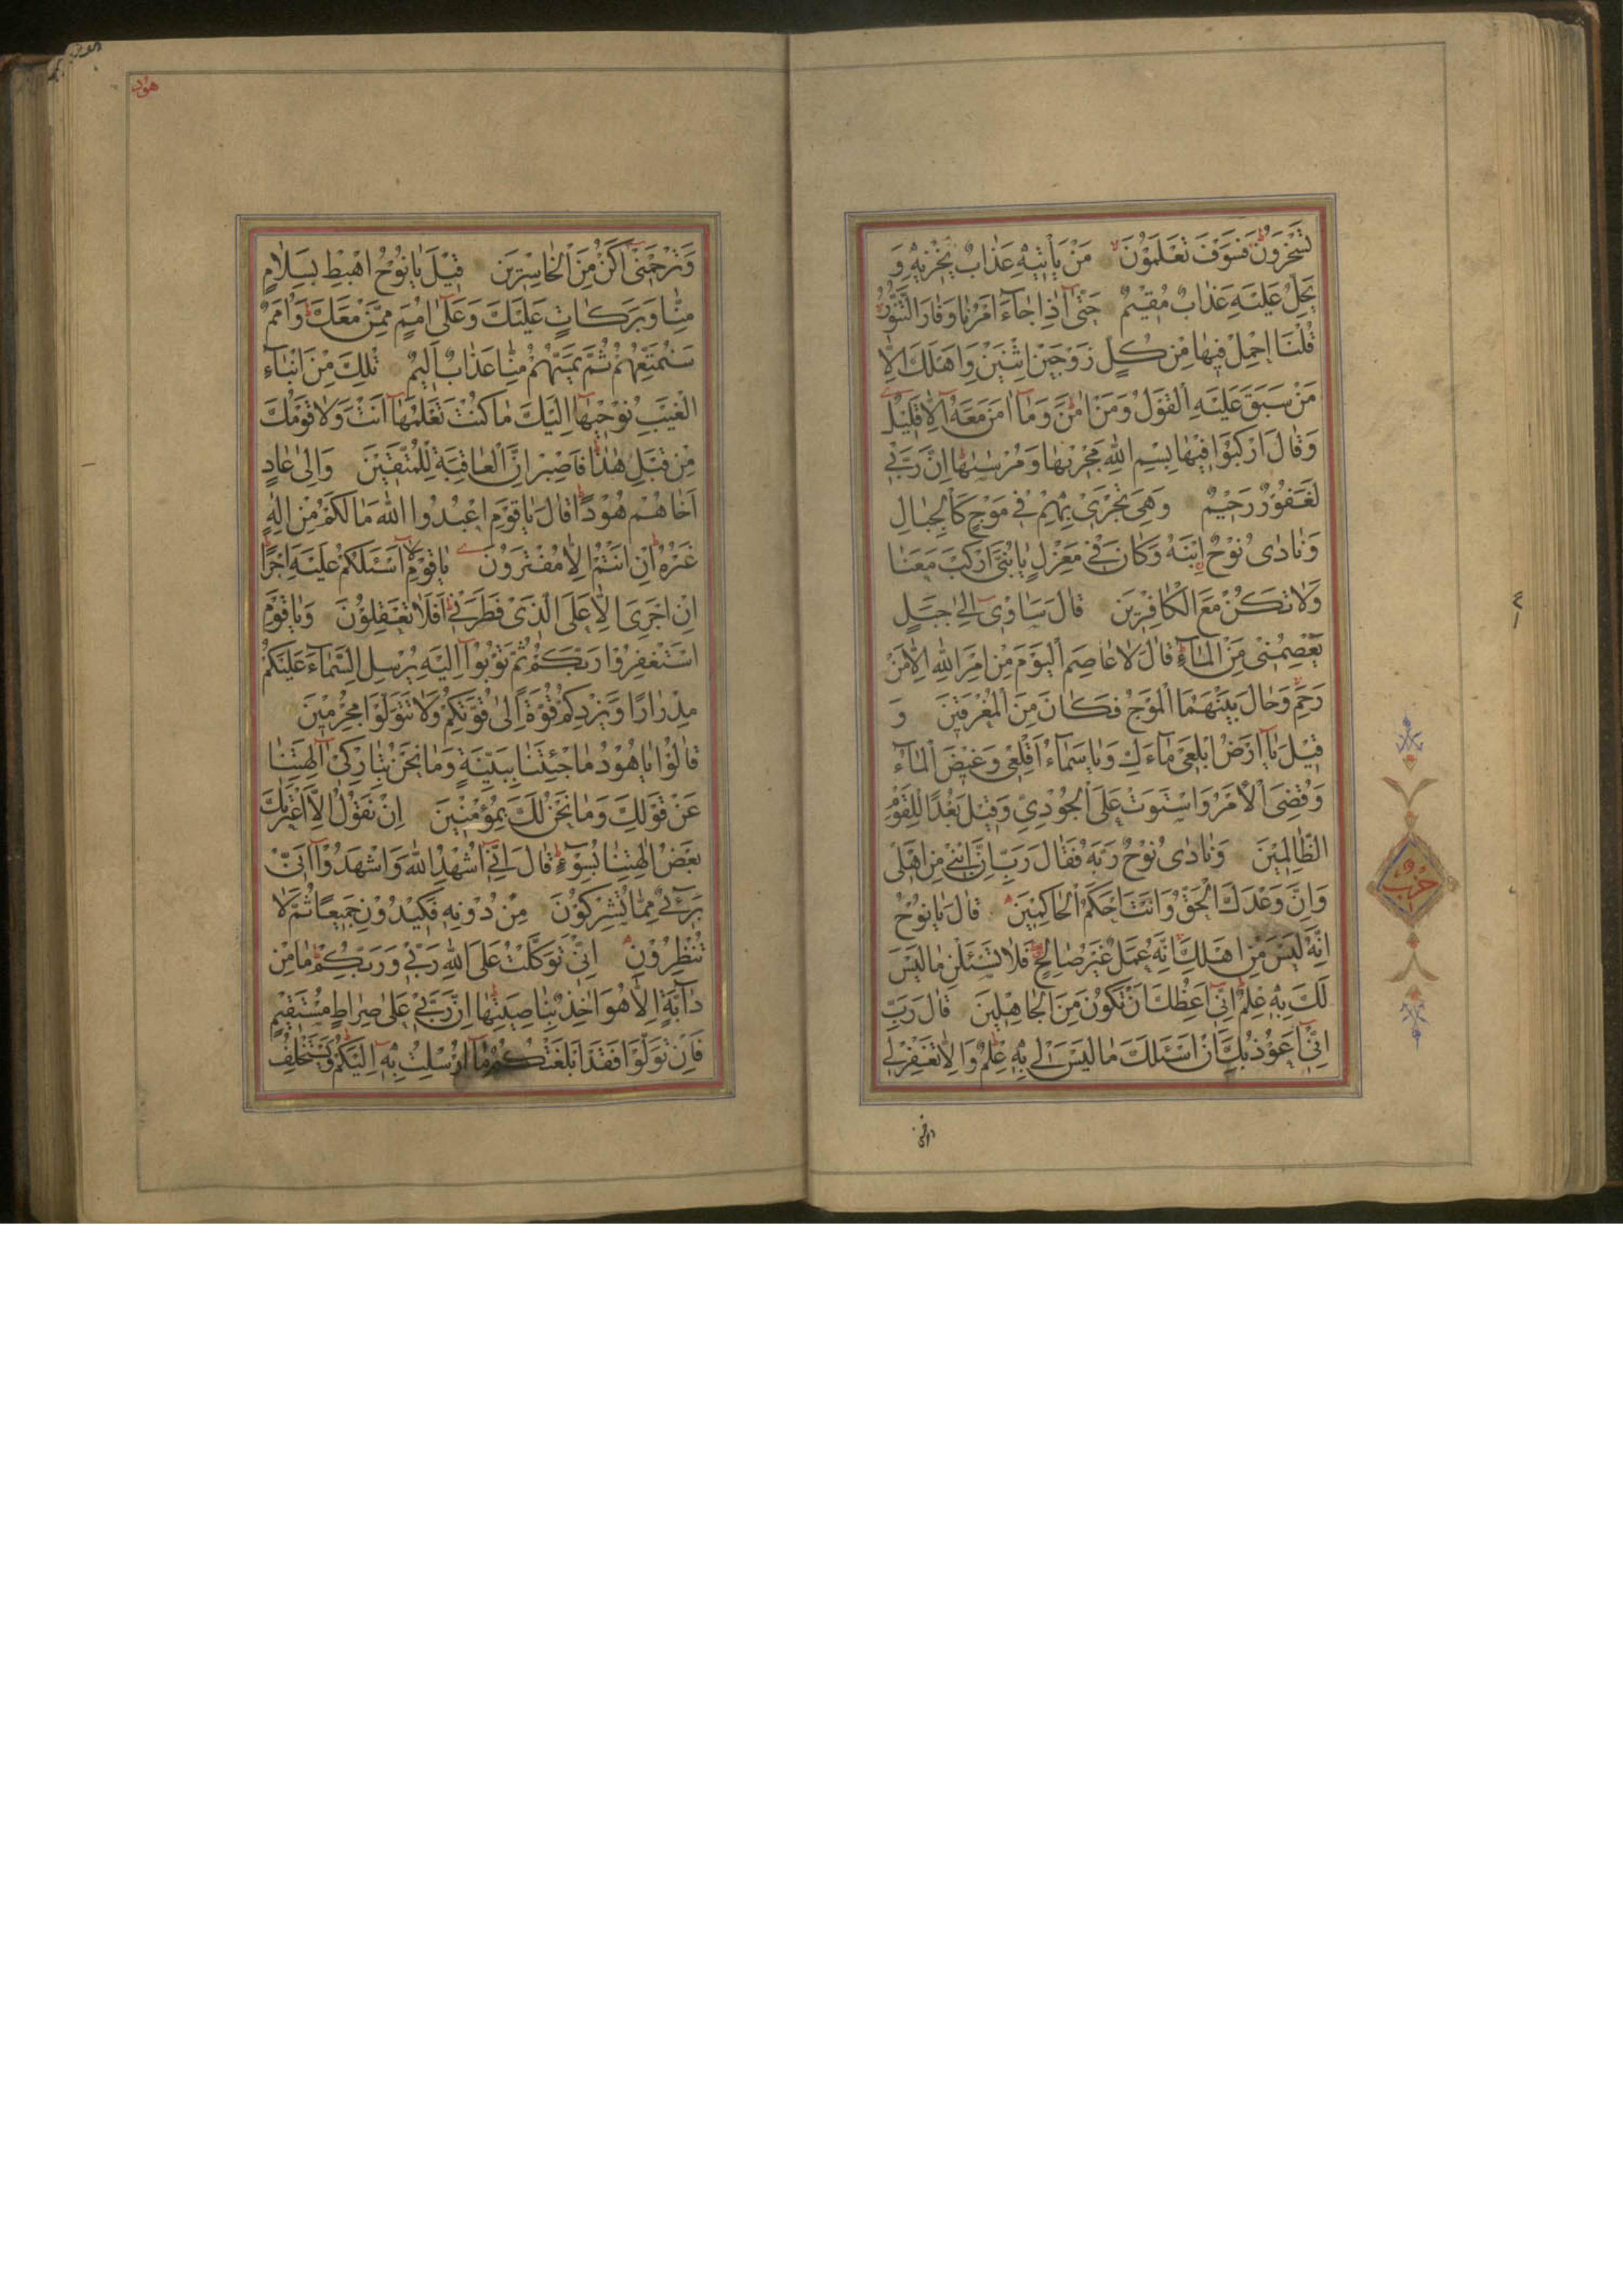 تَسْخَرُونَ فَسَوْفَ تَعْلَمُونَ مَنْ يَأْتِيهِ عَذَابٌ يُخْزِيهِ وَ
يَحِلُّ عَلَيْهِ عَذَابٌ مُقِيمٌ حَتَّى إِذَا جَاءَ أَمْرُنَا وَفَارَ التَّنُّورُ
قُلْنَا احْمِلْ فِيهَا مِنْ كُلٍّ زَوْجَيْنِ اثْنَيْنِ وَأَهْلَكَ إِلَّا
مَنْ سَبَقَ عَلَيْهِ الْقَوْلُ وَمَنْ آمَنَ وَمَا آمَنَ مَعَهُ إِلَّا قَلِيلٌ
وَقَالَ ارْكَبُوا فِيهَا بِسْمِ اللَّهِ مَجْرَيهَا وَمُرْسَيهَا إِنَّ رَبِّي
لَغَفُورٌ رَحِيمٌ وَهِيَ تَجْرِي بِهِمْ فِي مَوْجٍ كَالْجِبَالِ
وَنَادَى نُوحٌ ابْنَهُ وَكَانَ فِي مَعْزِلٍ يَا بُنَيَّ ارْكَبْ مَعَنَا
وَلَا تَكُنْ مَعَ الْكَافِرِينَ قَالَ سَآوِي إِلَى جَبَلٍ
يَعْصِمُنِي مِنَ الْمَاءِ قَالَ لَا عَاصِمَ الْيَوْمَ مِنْ أَمْرِ اللَّهِ إِلَّا مَنْ
رَحِمَ وَحَالَ بَيْنَهُمَا الْمَوْجُ فَكَانَ مِنَ الْمُغْرَقِينَ وَ
قِيلَ يَا أَرْضُ ابْلَعِي مَاءَكِ وَيَا سَمَاءُ أَقْلِعِي وَغِيضَ الْمَاءُ
وَقُضِيَ الْأَمْرُ وَاسْتَوَتْ عَلَى الْجُودِيِّ وَقِيلَ بُعْدًا لِلْقَوْمِ
الظَّالِمِينَ وَنَادَى نُوحٌ رَبَّهُ فَقَالَ رَبِّ إِنَّ ابْنِي مِنْ أَهْلِي
وَإِنَّ وَعْدَكَ الْحَقُّ وَأَنْتَ أَحْكَمُ الْحَاكِمِينَ قَالَ يَا نُوحُ
إِنَّهُ لَيْسَ مِنْ أَهْلِكَ إِنَّهُ عَمَلٌ غَيْرُ صَالِحٍ فَلَا تَسْئَلْنِ مَا لَيْسَ
لَكَ بِهِ عِلْمٌ إِنِّي أَعِظُكَ أَنْ تَكُونَ مِنَ الْجَاهِلِينَ قَالَ رَبِّ
إِنِّي أَعُوذُ بِكَ أَنْ أَسْئَلَكَ مَا لَيْسَ لِي بِهِ عِلْمٌ وَإِلَّا تَغْفِرْ لِي
حزب
هود
وَتَرْحَمْنِي أَكُنْ مِنَ الْخَاسِرِينَ قِيلَ يَا نُوحُ اهْبِطْ بِسَلَامٍ
مِنَّا وَبَرَكَاتٍ عَلَيْكَ وَعَلَى أُمَمٍ مِمَّنْ مَعَكَ وَأُمَمٌ
سَنُمَتِّعُهُمْ ثُمَّ يَمَسُّهُمْ مِنَّا عَذَابٌ أَلِيمٌ تِلْكَ مِنْ أَنْبَاءِ
الْغَيْبِ نُوحِيهَا إِلَيْكَ مَا كُنْتَ تَعْلَمُهَا أَنْتَ وَلَا قَوْمُكَ
مِنْ قَبْلِ هَذَا فَاصْبِرْ إِنَّ الْعَاقِبَةَ لِلْمُتَّقِينَ وَإِلَى عَادٍ
أَخَاهُمْ هُودًا قَالَ يَا قَوْمِ اعْبُدُوا اللَّهَ مَا لَكُمْ مِنْ إِلَهٍ
غَيْرُهُ إِنْ أَنْتُمْ إِلَّا مُفْتَرُونَ يَا قَوْمِ لَا أَسْئَلُكُمْ عَلَيْهِ أَجْرًا
إِنْ أَجْرِيَ إِلَّا عَلَى الَّذِي فَطَرَنِي أَفَلَا تَعْقِلُونَ وَيَا قَوْمِ
اسْتَغْفِرُوا رَبَّكُمْ ثُمَّ تُوبُوا إِلَيْهِ يُرْسِلِ السَّمَاءَ عَلَيْكُمْ
مِدْرَارًا وَيَزِدْكُمْ قُوَّةً إِلَى قُوَّتِكُمْ وَلَا تَتَوَلَّوْا مُجْرِمِينَ
قَالُوا يَا هُودُ مَا جِئْتَنَا بِبَيِّنَةٍ وَمَا نَحْنُ بِتَارِكِي آلِهَتِنَا
عَنْ قَوْلِكَ وَمَا نَحْنُ لَكَ بِمُؤْمِنِينَ إِنْ نَقُولُ إِلَّا اعْتَرَيكَ
بَعْضُ آلِهَتِنَا بِسُوءٍ قَالَ إِنِّي أُشْهِدُ اللَّهَ وَاشْهَدُوا أَنِّي
بَرِيءٌ مِمَّا تُشْرِكُونَ مِنْ دُونِهِ فَكِيدُونِي جَمِيعًا ثُمَّ لَا
تُنْظِرُونِ إِنِّي تَوَكَّلْتُ عَلَى اللَّهِ رَبِّي وَرَبِّكُمْ مَا مِنْ
دَابَّةٍ إِلَّا هُوَ آخِذٌ بِنَاصِيَتِهَا إِنَّ رَبِّي عَلَى صِرَاطٍ مُسْتَقِيمٍ
فَإِنْ تَوَلَّوْا فَقَدْ أَبْلَغْتُكُمْ مَا أُرْسِلْتُ بِهِ إِلَيْكُمْ وَيَسْتَخْلِفُ